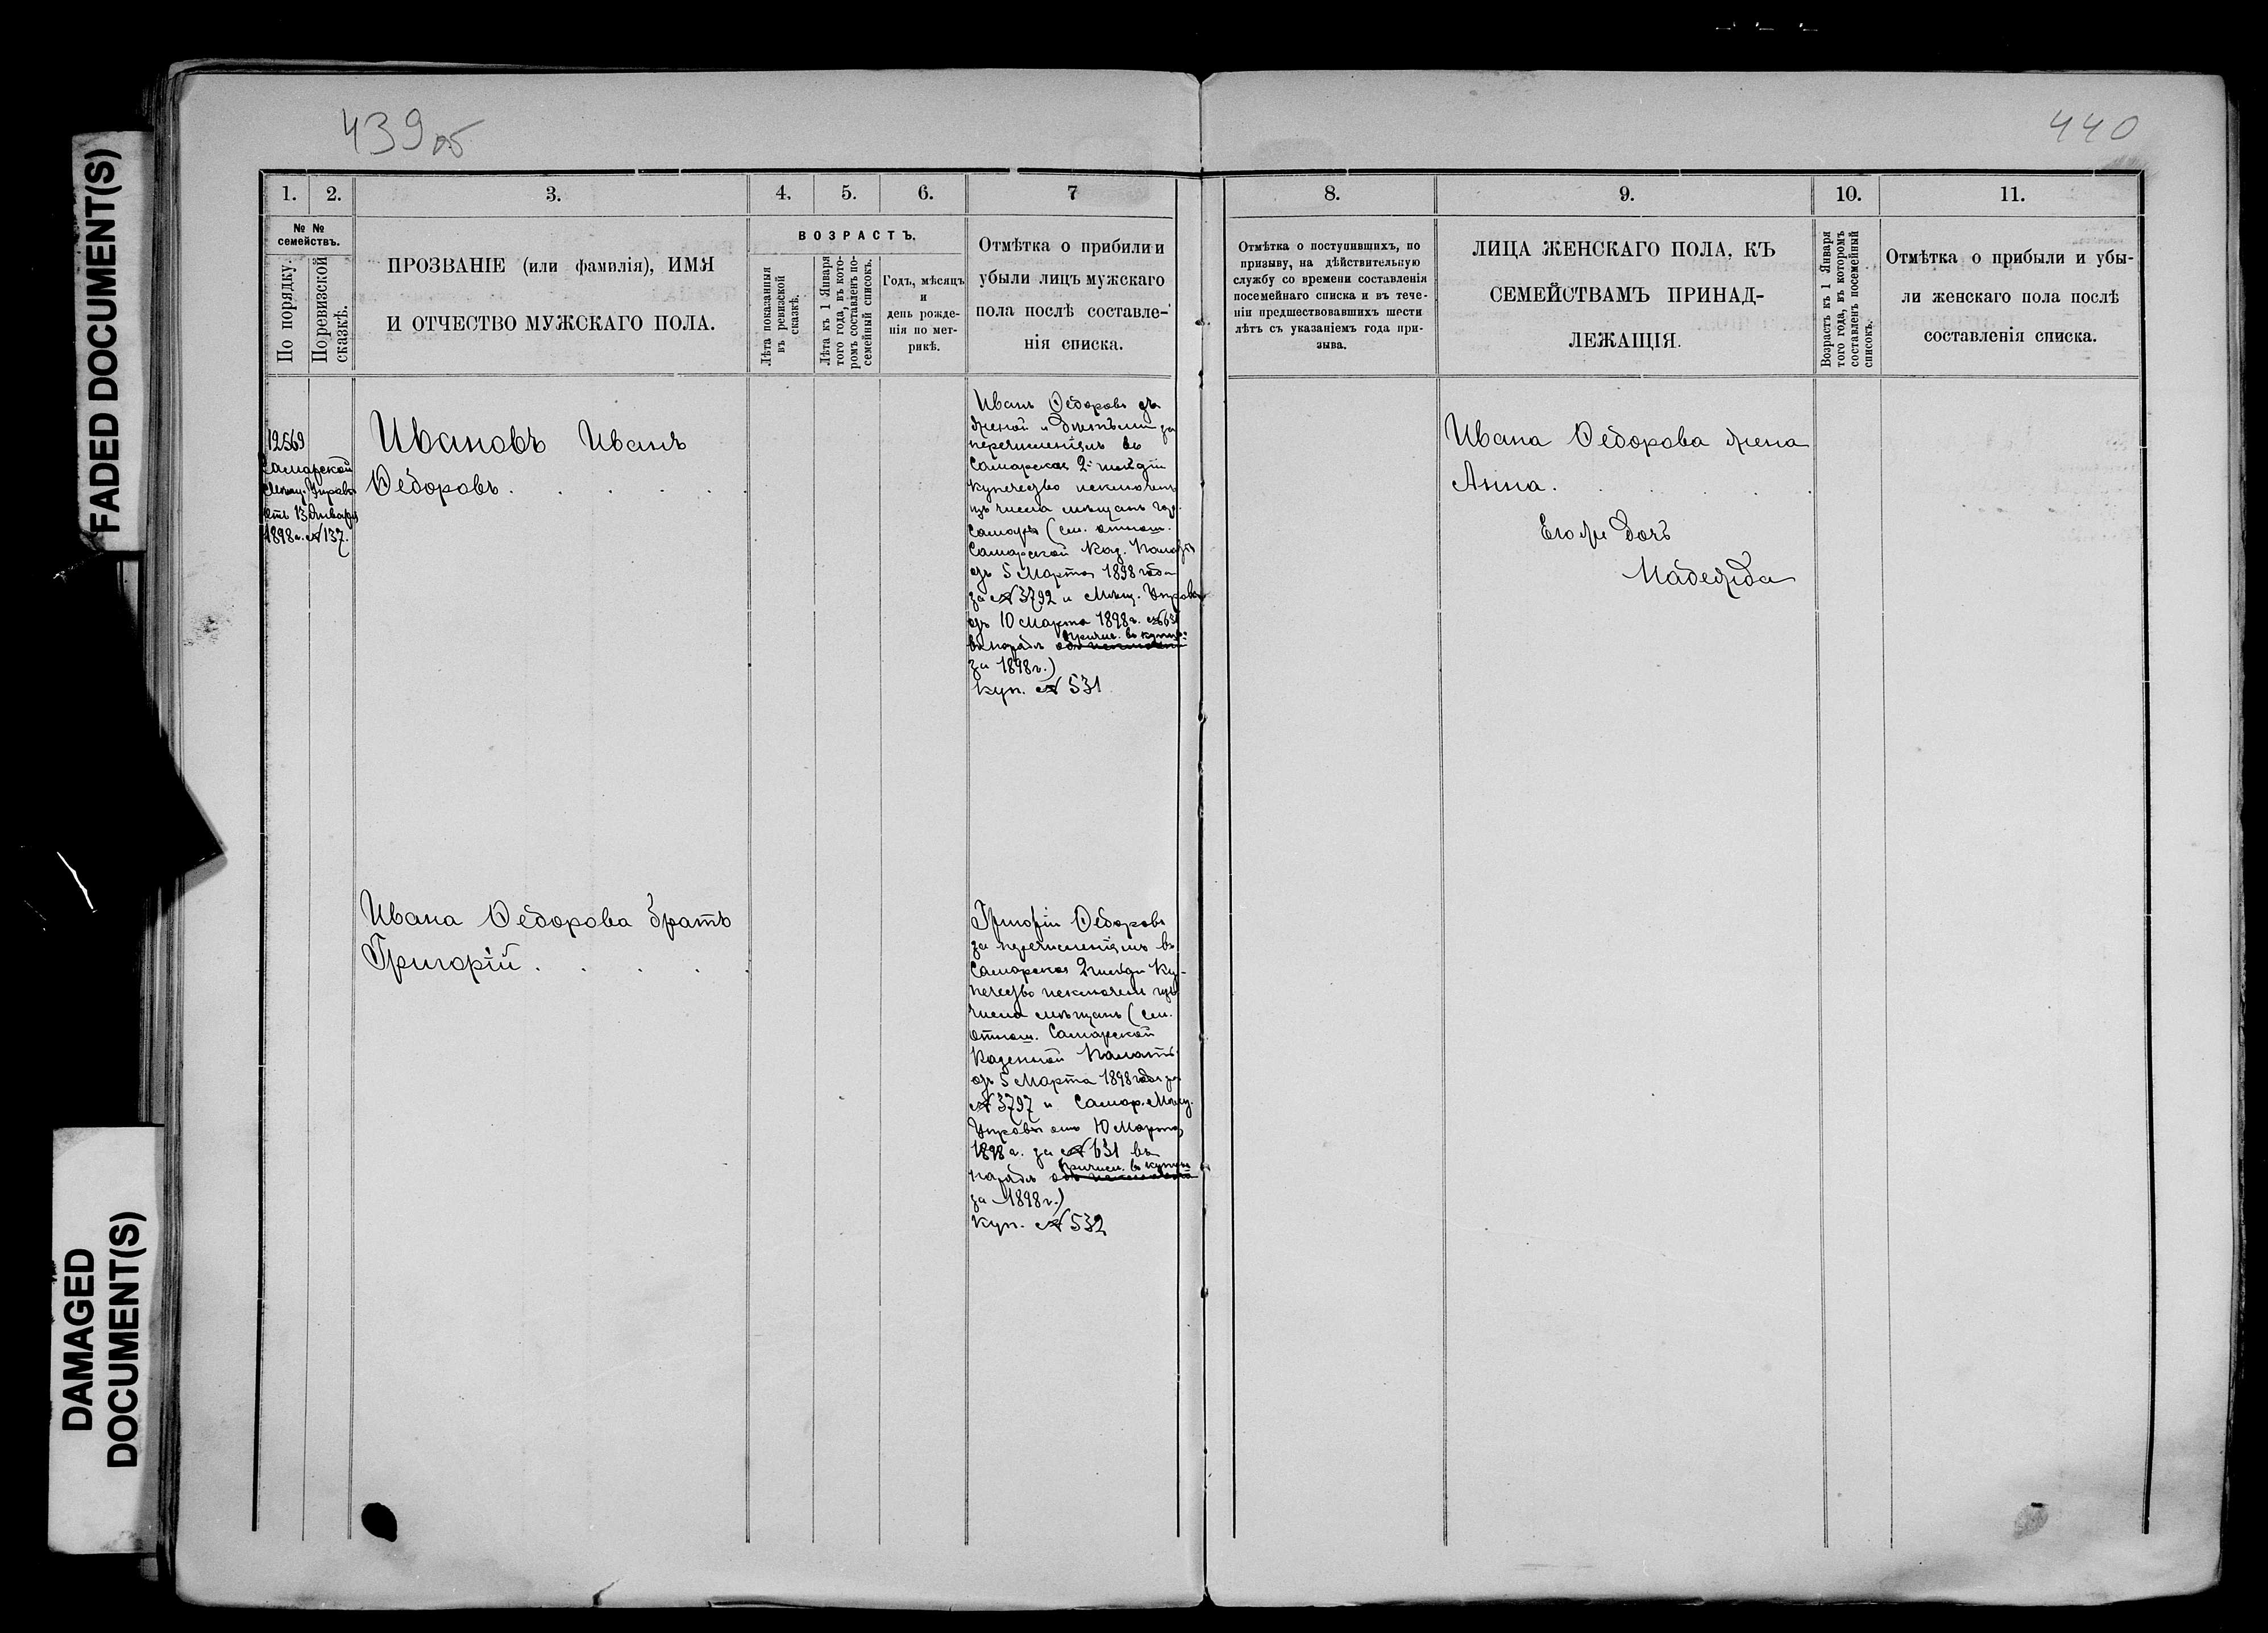 FADED DOCUMENT(S)
DAMAGED
DOCUMENT(S)
439об
440
1.
2.
3.
4.
5.
6.
7
№ №
семействъ.
По порядку.
По ревизской
сказкѣ.
ПРОЗВАНІЕ (или фамилія), ИМЯ
И ОТЧЕСТВО МУЖСКАГО ПОЛА.
ВОЗРАСТЪ.
Лѣта показанныя
въ ревизской
сказкѣ.
Лѣта къ 1 Января
того года, въ кото-
ромъ составленъ по-
семейный списокъ.
Годъ, мѣсяцъ
и
день рожде-
нія по мет-
рикѣ.
Отмѣтка о прибыли и
убыли лицъ мужскаго
пола послѣ составле-
нія списка.
12569
Самарской
Мѣщ. Управы
отъ 13 Января
1898 г. № 137.
Ивановъ Иванъ
Ѳедоровъ.
Иванъ Ѳедоровъ съ
женой и дѣтьми за
перечисленіемъ въ
Самарское 2й гильдіи
купечество исключенъ
изъ числа мѣщанъ гор.
Самары (см. отнош.
Самарской Каз. Палаты
отъ 5 Марта 1898 года
за № 3792 и Мѣщ. Управы
отъ 10 Марта 1898 г. № 631
причис. въ купцы
въ нарядѣ
за 1898 г.)
Куп. № 531
Ивана Ѳедорова братъ
Григорій.
Григорій Ѳедоровъ
за перечисленіемъ въ
Самарское 2 гильди Ку-
печество исключенъ изъ
числа мѣщанъ (см.
отнош. Самарской
Казенной Палаты
отъ 5 Марта 1898 года за
№ 3797 и Самар. Мѣщ.
Управы отъ 10 Марта
1898 г. за № 631 въ
причисл. въ купцы
нарядѣ
за 1898 г.)
Куп. № 532
8.
9.
10.
11.
Отмѣтка о поступившихъ, по
призыву, на дѣйствительную
службу со времени составленія
посемейнаго списка и въ тече-
ніи предшествовавшихъ шести
лѣтъ съ указаніемъ года при-
зыва.
ЛИЦА ЖЕНСКАГО ПОЛА, КЪ
СЕМЕЙСТВАМЪ ПРИНАД-
ЛЕЖАЩІЯ.
Возрастъ къ 1 Января
того года, въ которомъ
составленъ посемейный
списокъ.
Отмѣтка о прибыли и убы-
ли женскаго пола послѣ
составленія списка.
Ивана Ѳедорова жена
Анна.
Его же дочь
Надежда